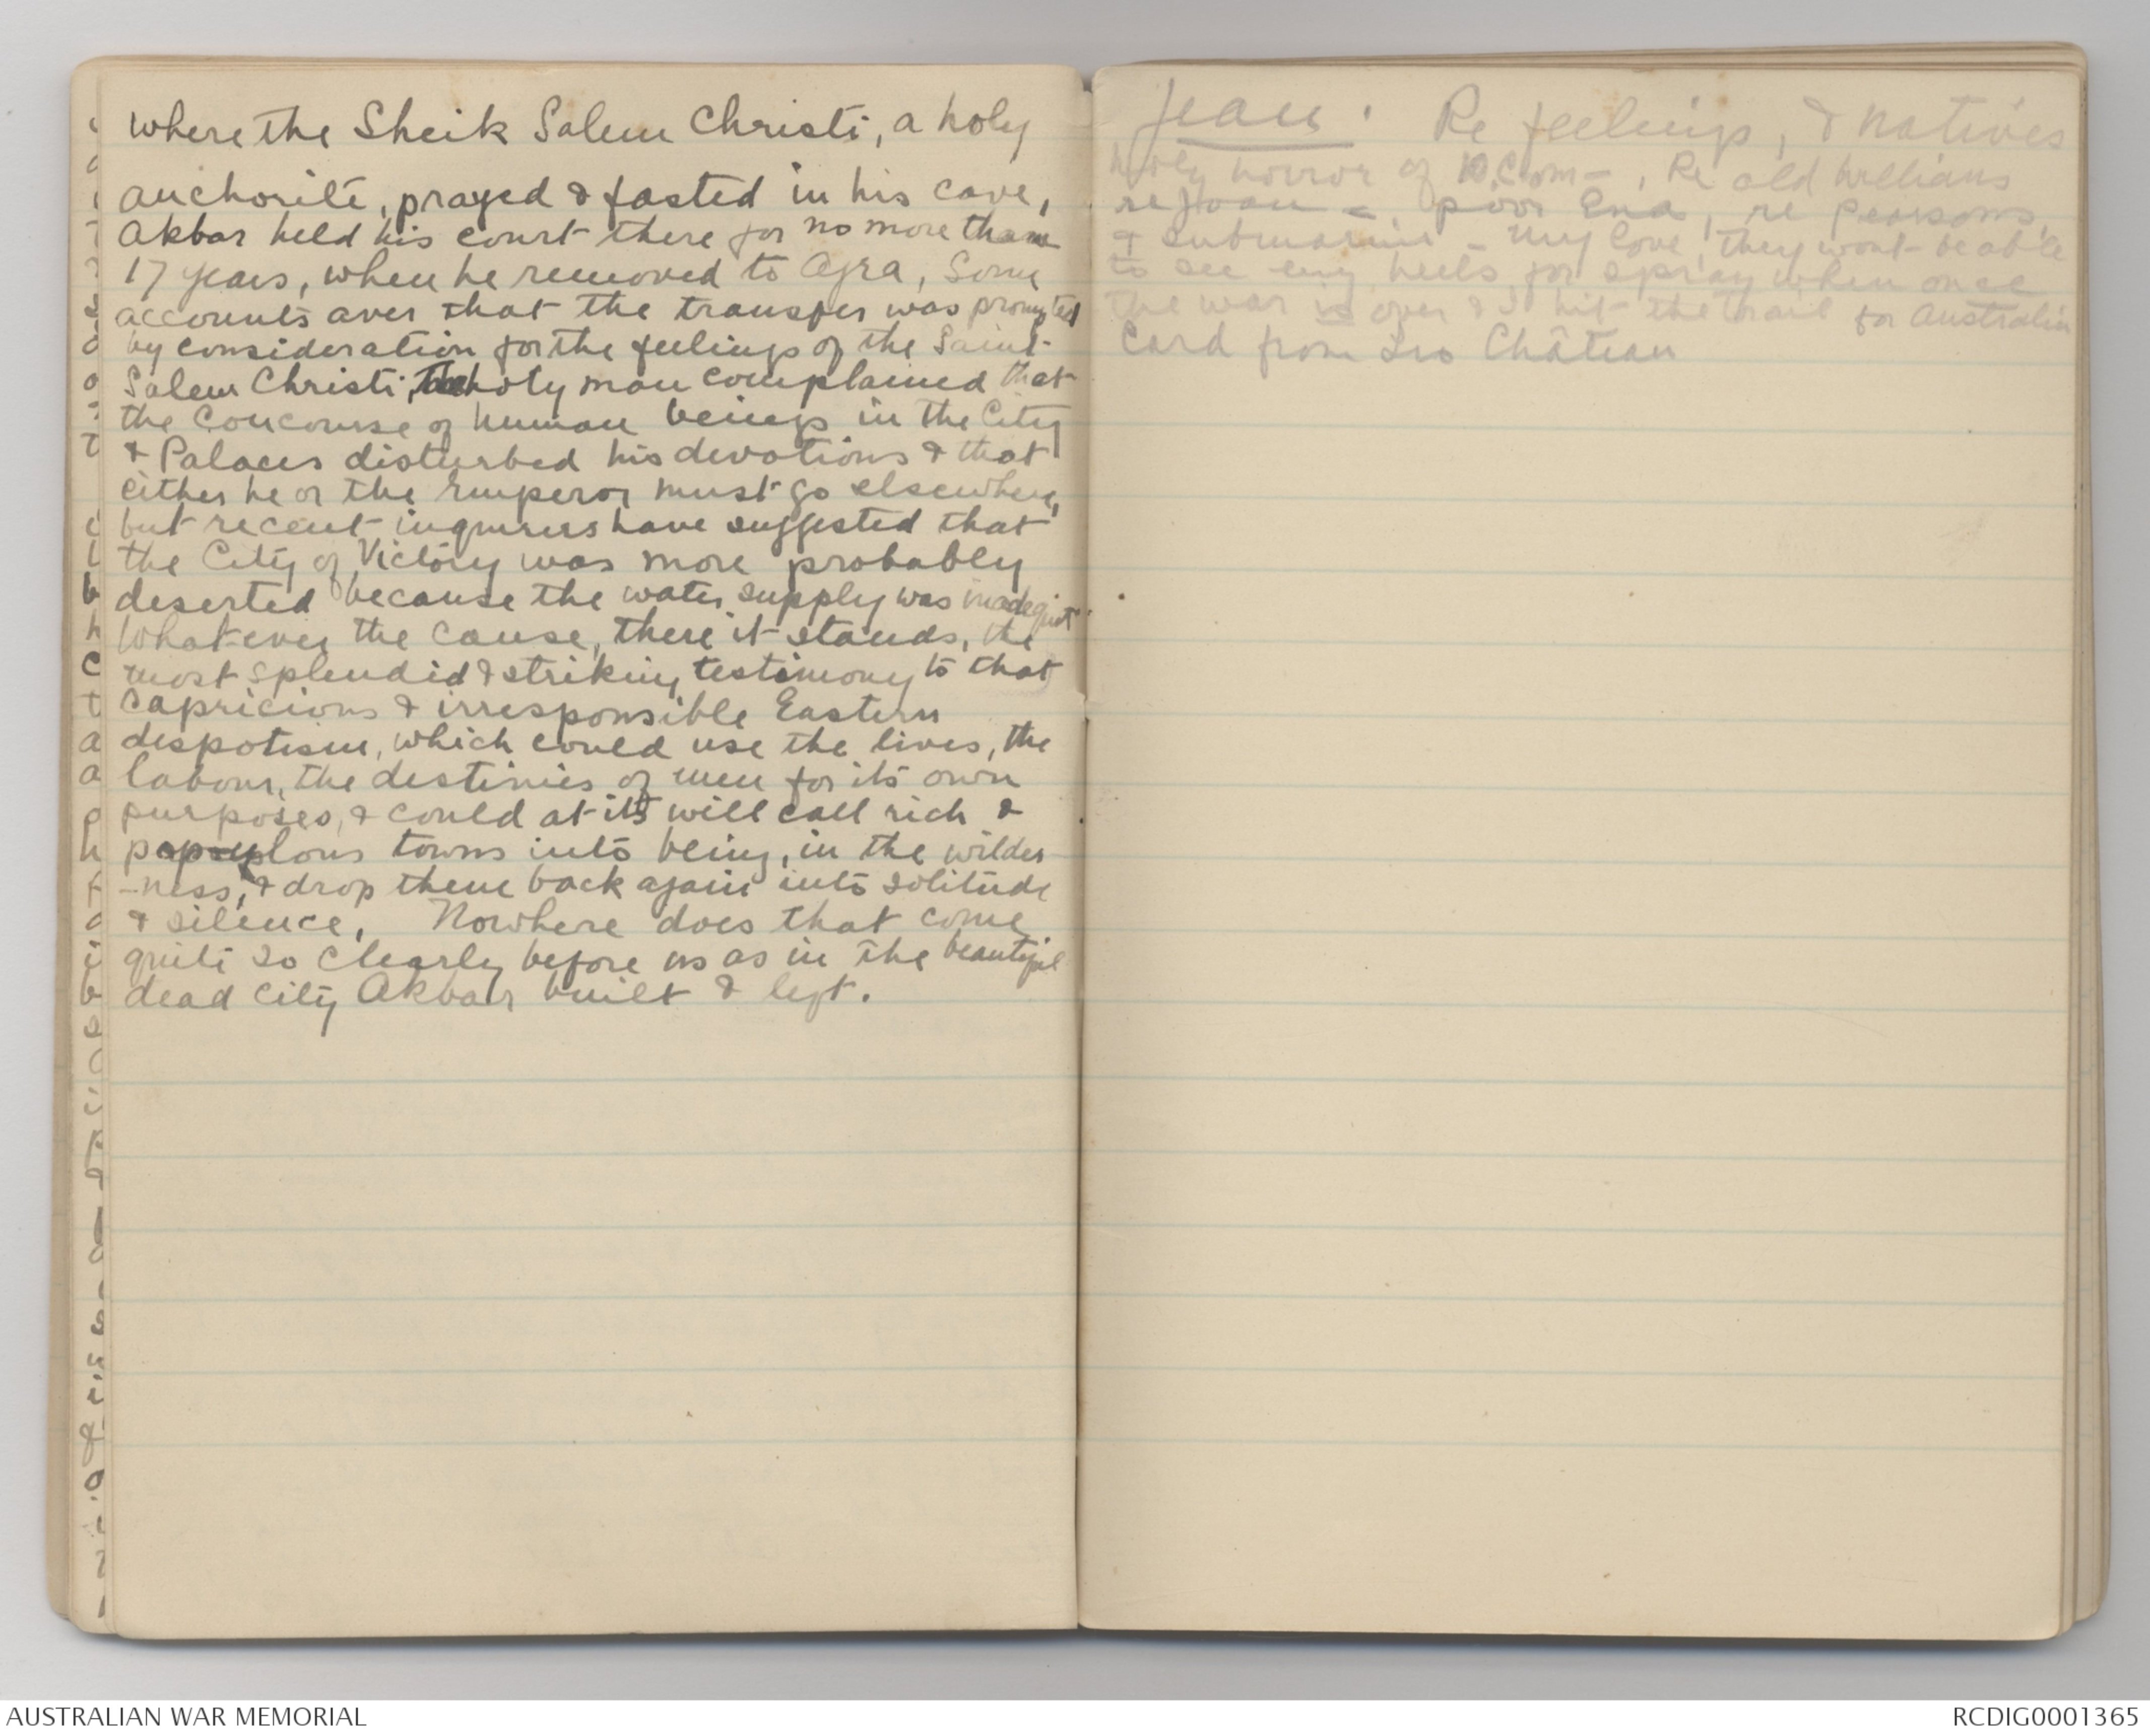 where the Sheik Salem Christi, a holy
anchorite, prayed & fasted in his cave,
Akbar held his court there for no more than
17 years, when he removed to Agra, Some
accounts aver that the transfer was prompted
by consideration for the feelings of the Saint
Salem Christi, The holy man complained that
the Concourse of human beings in the City
& Palaces disturbed his devotions & that
either he or the Emperor must go elsewhere,
but recent inquirers have suggested that
the City of Victory was more probably
deserted because the water supply was inadequt.
Whatever the cause, there it stands, the
most splendid & striking testimony to that
capricious & irresponsible Eastern
despotism, which could use the lives, the
labour, the destinies of men for its own
purposes, & could at its will call rich &
populous towns into being, in the wilder
-ness, & drop them back again into solitude
& silence. Nowhere does that come
quite so clearly before us as in the beautiful
dead city Akbar built & left.
Jean. Re feelings, & natives
holy horror of Com-, Re old Williams
re Joan - poor Ena, re Pearsons,
& submarine - My love, they wont be able
to see my heels for spray when once
the war is over & I hit the trail for Australia
Card from Château
AUSTRALIAN WAR MEMORIAL
RCDIG0001365